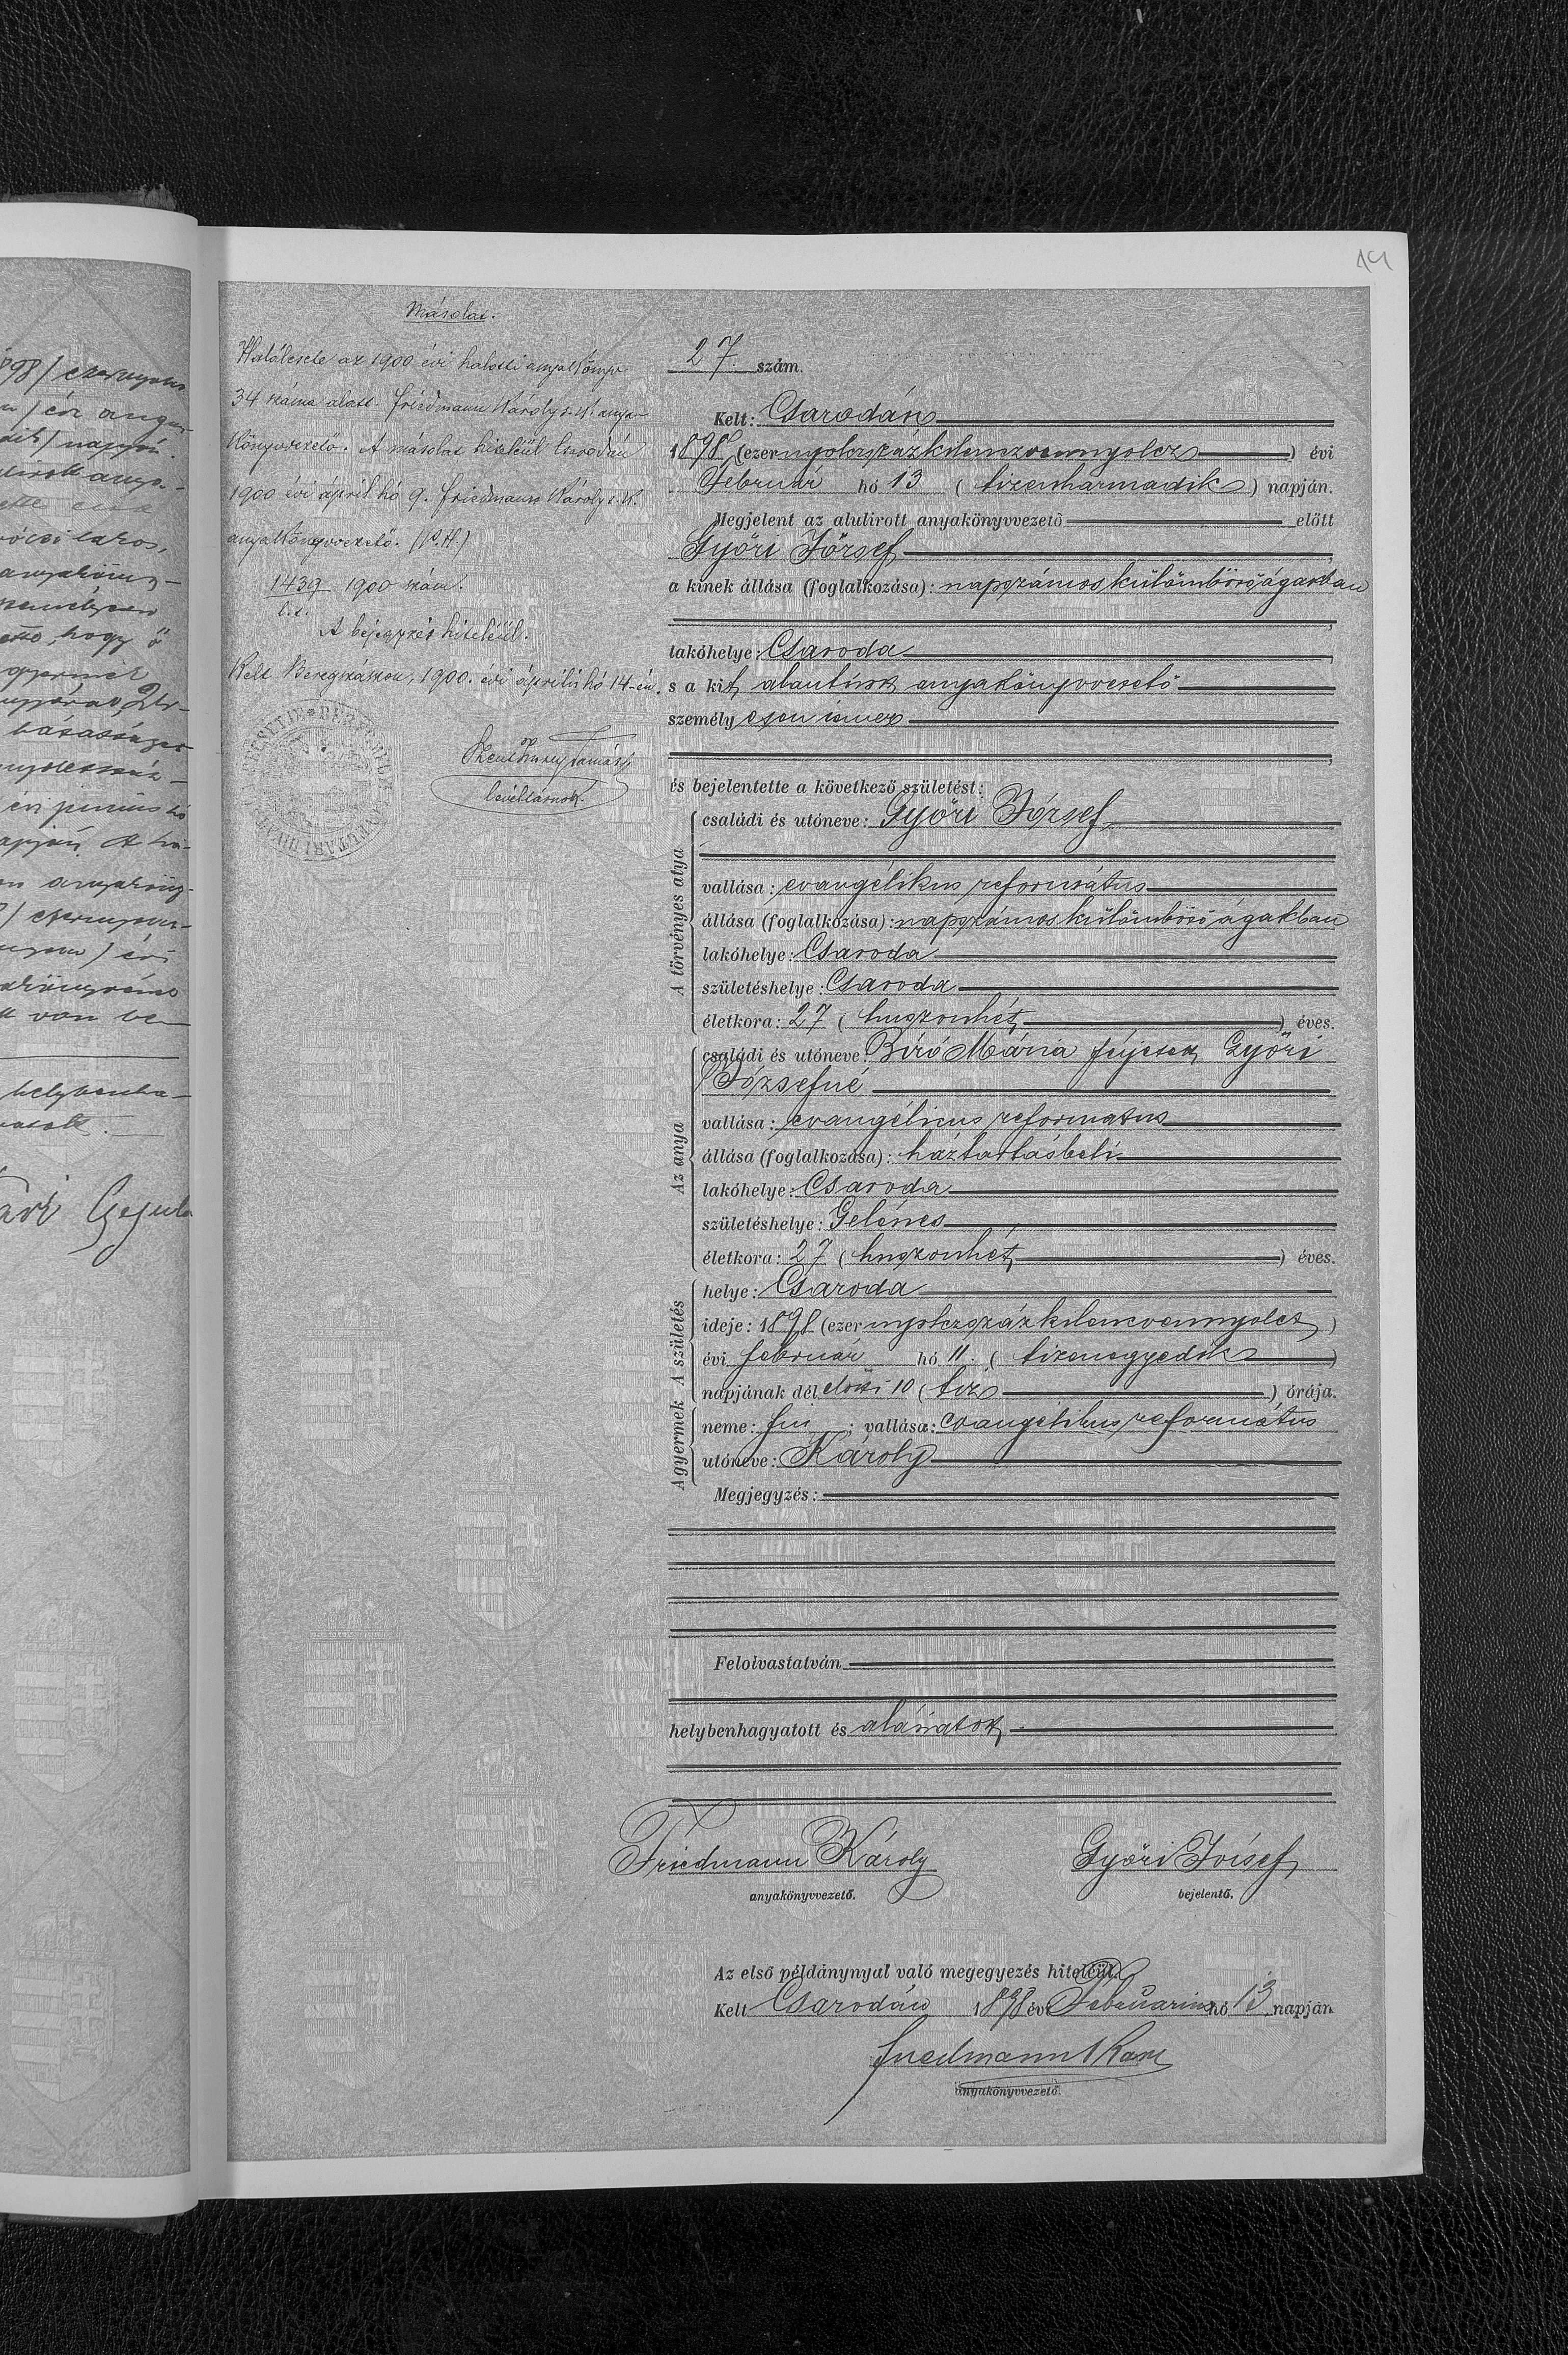 14
Másolat.
Halálesete az 1900 évi halotti anyakönyv
34 száma alatt. Friedmann Károly s. k. anya-
könyvvezető. A másolat hiteléül Csarodán
1900 évi ápril hó 9. Friedmann Károly s. k.
anyakönyvvezető. (P.H.)
1439 1900 szám.
A bejegyzés hiteléül.
Kelt Beregszászon, 1900. évi április hó 14-én.
Tamás
levéltárnok.
27. szám.
Kelt: Csarodán
1898 (ezernyolczszázkilenczvennyolcz) évi
Február hó 13 (tizenharmadik) napján.
Megjelent az alulirott anyakönyvvezető előtt
Győri József
a kinek állása (foglalkozása): napszámos külömböző ágakban
lakóhelye: Csaroda
s a kit alantirott anyakönyvvezető
személyesen ismer
és bejelentette a következő születést:
A törvényes atya
családi és utóneve: Győri József
vallása: evangélikus református
állása (foglalkozása): napszámos külömböző ágakban
lakóhelye: Csaroda
születéshelye: Csaroda
életkora: 27 (huszonhét) éves.
Az anya
családi és utóneve: Bíró Mária férjezett Győri
Józsefné
vallása: evangélicus reformatus
állása (foglalkozása): háztartásbeli
lakóhelye: Csaroda
születéshelye: Gelénes
életkora: 27 (huszonhét) éves.
A születés
helye: Csaroda
ideje: 1898 (ezernyolczszázkilenczvennyolcz)
évi február hó 11. (tizenegyedik)
napjának délelőtti 10 (tiz) órája.
A gyermek
neme: fiú; vallása: evangélikus református
utóneve: Károly
Megjegyzés:
Felolvastatván
helybenhagyatott és aláiratott
Friedmann Károly
anyakönyvvezető.
Győri József
bejelentő.
Az első példánynyal való megegyezés hiteléül.
Kelt Csarodán 1898 évi Februárius hó 13 napján
Friedmann Károly
anyakönyvvezető.